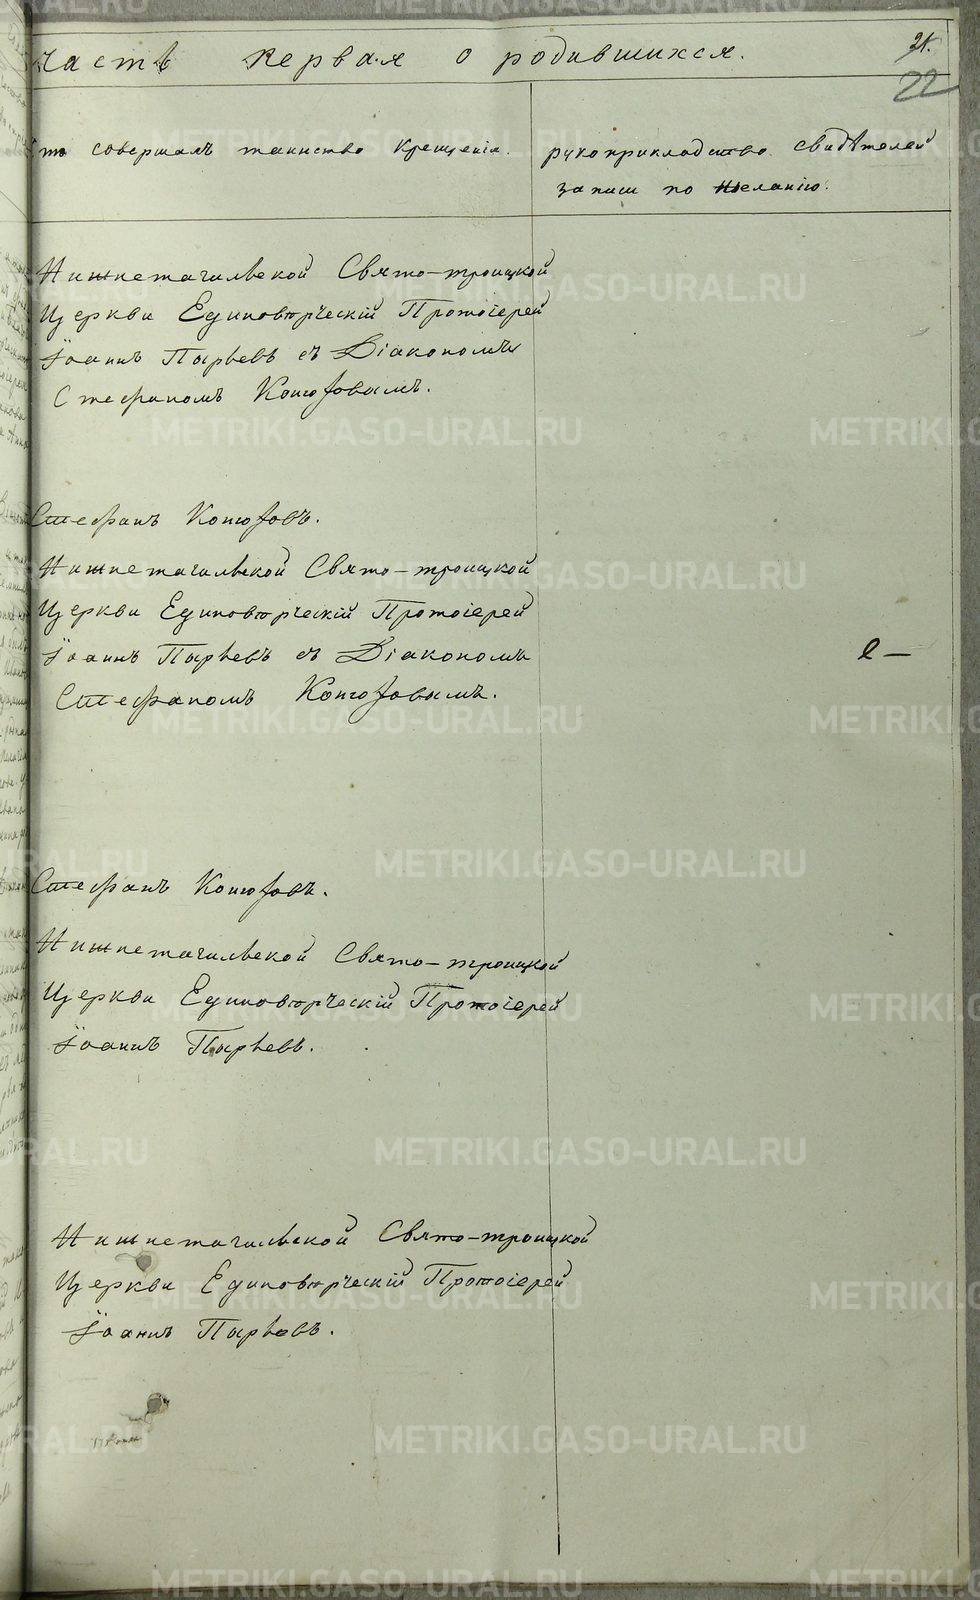 Часть первая о родившихся.
21.
22
Кто совершалъ таинство Крещенія.
рукоприкладство свидѣтелей
записи по желанію.
Нижнетагильской Свято-троицкой
Церкви Единовѣрческій Протоіерей
Іоаннъ Пырьевъ съ Діакономъ
Стефаномъ Конюховымъ.
Стефанъ Конюховъ.
Нижнетагильской Свято-троицкой
Церкви Единовѣрческій Протоіерей
Іоаннъ Пырьевъ съ Діакономъ
Стефаномъ Конюховымъ.
Стефанъ Конюховъ.
Нижнетагильской Свято-троицкой
Церкви Единовѣрческій Протоіерей
Іоаннъ Пырьевъ.
Нижнетагильской Свято-троицкой
Церкви Единовѣрческій Протоіерей
Іоаннъ Пырьевъ.
METRIKI.GASO-URAL.RU